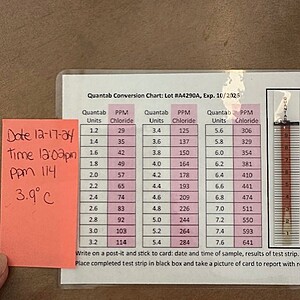 Quantab Conversion Chart: Lot #A4290A, Exp. 10/2025
Quantab Units PPM Chloride Quantab Units PPM Chloride Quantab Units PPM Chloride
1.2 29 3.4 125 5.6 306
1.4 35 3.6 137 5.8 329
1.6 42 3.8 150 6.0 354
1.8 49 4.0 164 6.2 381
2.0 57 4.2 178 6.4 410
2.2 65 4.4 193 6.6 441
2.4 74 4.6 209 6.8 474
2.6 83 4.8 226 7.0 511
2.8 92 5.0 244 7.2 550
3.0 103 5.2 264 7.4 593
3.2 114 5.4 284 7.6 641
Write on a post-it and stick to card: date and time of sample, results of test strip.
Place completed test strip in black box and take a picture of card to report with
Date 12-17-24
Time 12:02pm
ppm 114
3.9°C